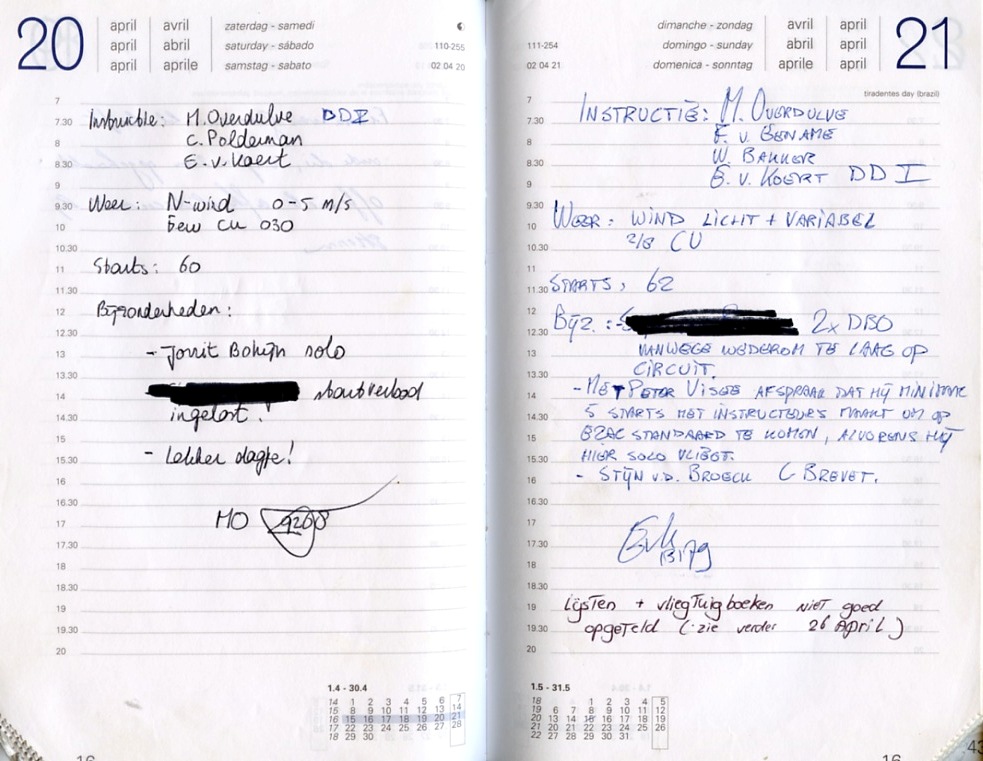 20
april avril zaterdag - samedi
april abril saturday - sábado 110-255
april aprile samstag - sabato 02 04 20
7
7.30 Instructie: M. Overdulve DDI
8 C. Polderman
8.30 E. v. Koert
9
9.30 Weer: N-wind 0-5 m/s
10 few cu 030
10.30
11 Starts: 60
11.30
12 Bijzonderheden:
12.30
13 - Jorrit Bohijn solo
13.30
14 startverbod
14.30 ingelost!
15
15.30 - Lekker dagje!
16
16.30
17 MO
17.30
18
18.30
19
19.30
20
1.4 - 30.4
14 1 2 3 4 5 6 7
15 8 9 10 11 12 13 14
16 15 16 17 18 19 20 21
17 22 23 24 25 26 27 28
18 29 30
16
dimanche - zondag avril april 21
111-254 domingo - sunday abril april
02 04 21 domenica - sonntag aprile april
tiradentes day (brazil)
7
7.30 INSTRUCTIE: M. OVERDULVE
8 F. v. BENAME
8.30 W. BAKKER
9 E. v. KOERT DD I
9.30 WEER: WIND LICHT + VARIABEL
10
10.30 2/8 CU
11
11.30 STARTS: 62
12
12.30 BIJZ.: 2x DBO
13 VANWEGE WEDEROM TE LAAG OP
13.30 CIRCUIT.
14 - MET PETER VISEE AFSPRAAK DAT HIJ MINIMAAL
14.30 5 STARTS MET INSTRUCTEURS MAAKT OM OP
15 EZAC STANDAARD TE KOMEN, ALVORENS HIJ
15.30 HIER SOLO VLIEGT.
16 - STIJN v.d. BROECK C BREVET.
16.30
17
17.30
18
18.30
19 Lijsten + vliegtuigboeken niet goed
19.30 opgeteld (: zie verder 26 April)
20
1.5 - 31.5
18 1 2 3 4 5
19 6 7 8 9 10 11 12
20 13 14 15 16 17 18 19
21 20 21 22 23 24 25 26
22 27 28 29 30 31
16
43